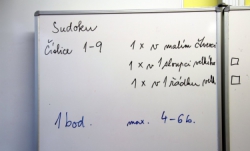 Sudoku
Číslice 1-9 1 x v malém čtverci
1 x v 1 sloupci velkého
1 x v 1 řádku velk
1 bod. max. 4-6b.